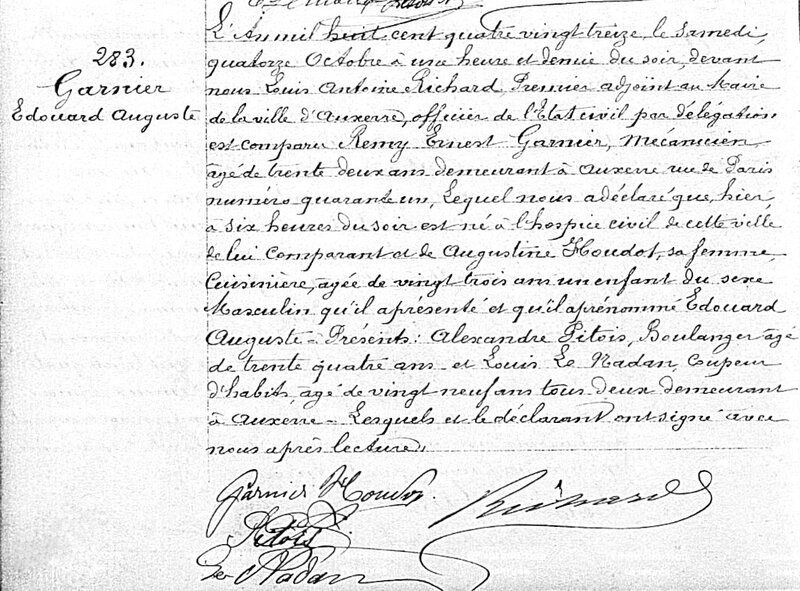 283.
Garnier
Edouard Auguste
L'An mil huit cent quatre vingt treize, le samedi,
quatorze Octobre à une heure et demie du soir, devant
nous Louis Antoine Richard, Premier adjoint au Maire
de la ville d'Auxerre, officier de l'Etat civil par délégation
est comparu Remy Ernest Garnier, Mécanicien
âgé de trente deux ans demeurant à Auxerre rue de Paris
numéro quarante un, Lequel nous a déclaré que, hier,
à six heures du soir est né à l'hospice civil de cette ville
de lui comparant et de Augustine Houdot, sa femme,
Cuisinière, agée de vingt trois ans un enfant du sexe
Masculin qu'il a présenté et qu'il a prénommé Edouard
Auguste - Présents: Alexandre Pitois, Boulanger agé
de trente quatre ans et Louis Le Nadan, Coupeur
d'habits, agé de vingt neuf ans tous deux demeurant
à Auxerre - Lesquels et le déclarant ont signé avec
nous après lecture,
Garnier Houdot
Richard
Pitois
Nadan